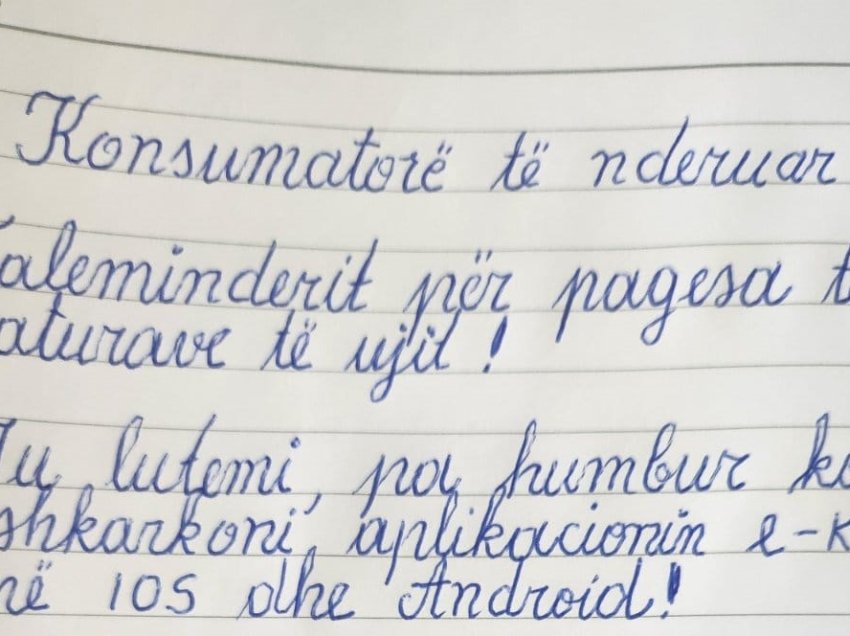 Konsumatorë të nderuar
aleminderit për pagesa t
aturave të ujit!
Ju lutemi, pa humbur ko
shkarkoni aplikacionin e-K
në IOS dhe Android!